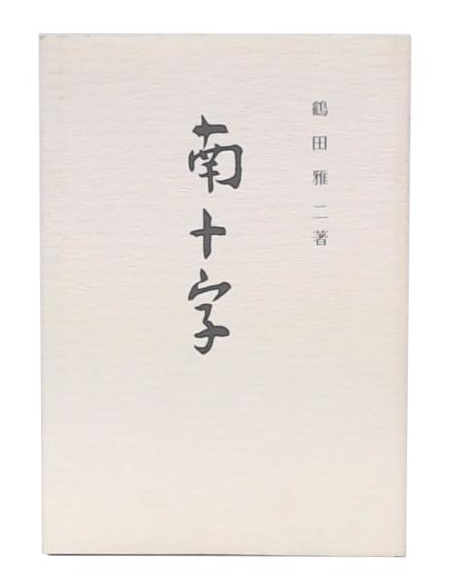 鶴田雅二著
南十字